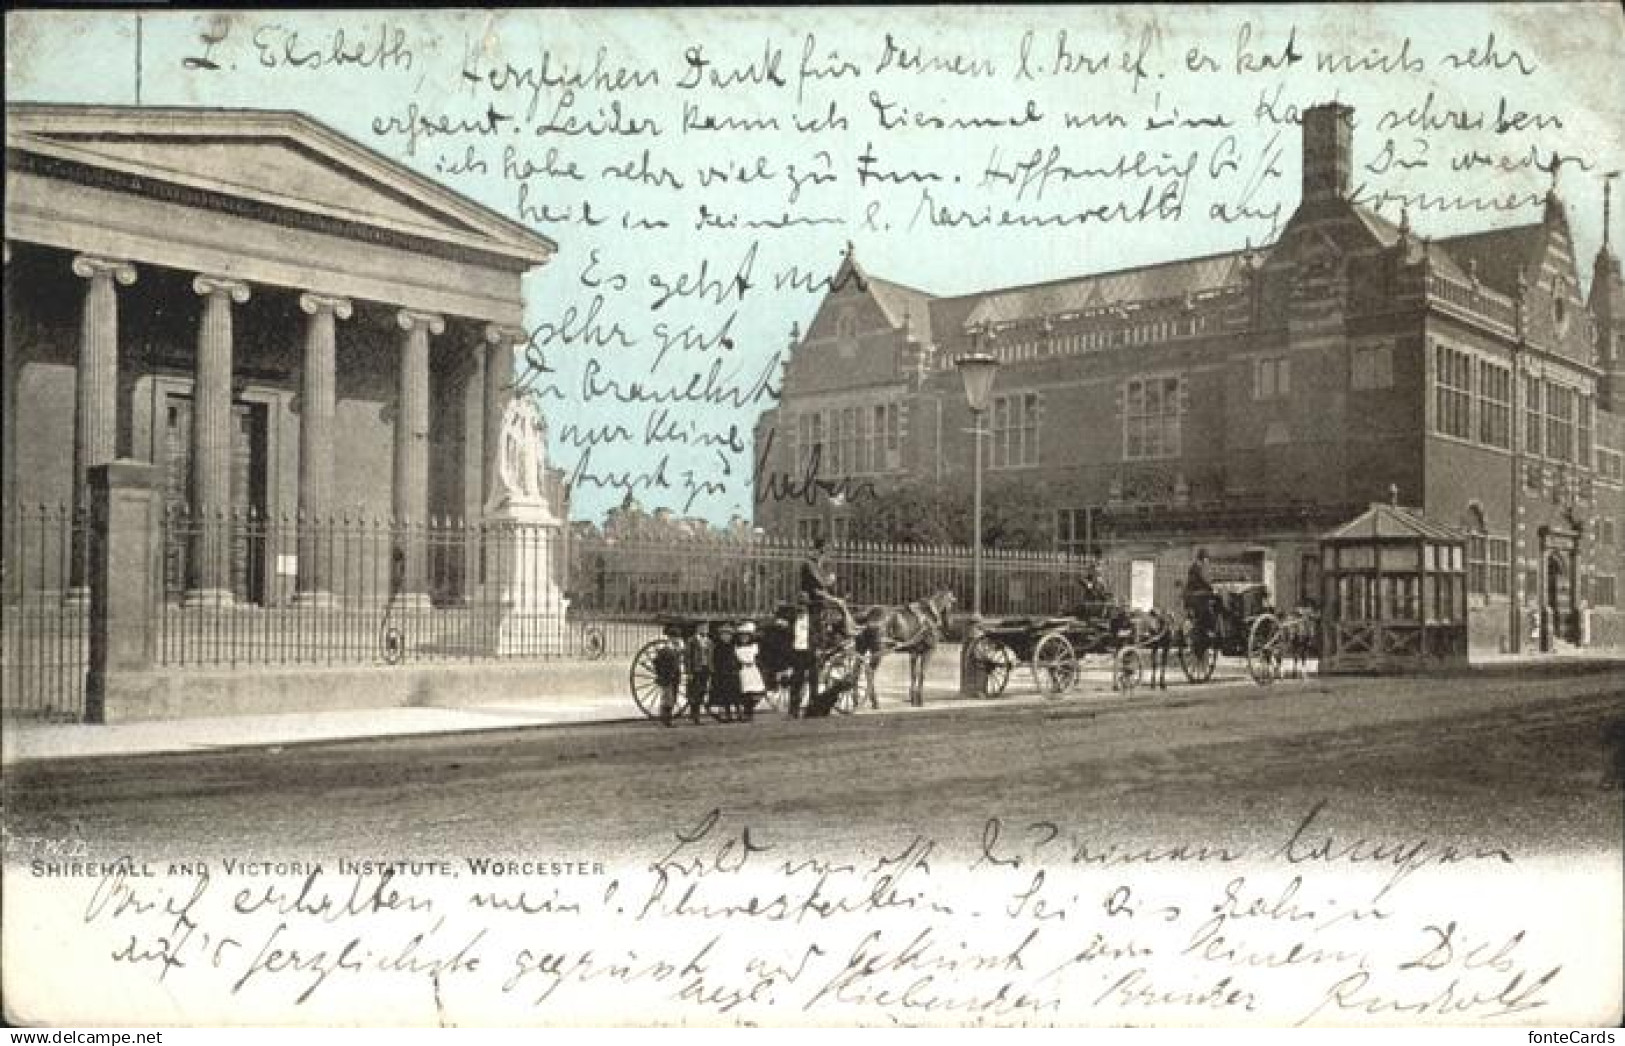 L. Elsbeth, Herzlichen Dank für Deinen l. Brief. er hat mich sehr
erfreut. Leider kann ich diesmal nur eine Karte schreiben
ich habe sehr viel zu tun. Hoffentlich bist Du wieder
heil in Deinem l. Marienwerth angekommen.
Es geht mir
sehr gut
Du brauchst
nur keine
Angst zu haben
E.T.W.D.
SHIREHALL AND VICTORIA INSTITUTE, WORCESTER
Bald wirst du einen langen
Brief erhalten, mein l. Schwesterlein. Sei bis dahin
auf's herzlichste gegrüsst und geküsst von Deinem Dich
liebenden Bruder Rudolf
CARD00632412 fonteCards